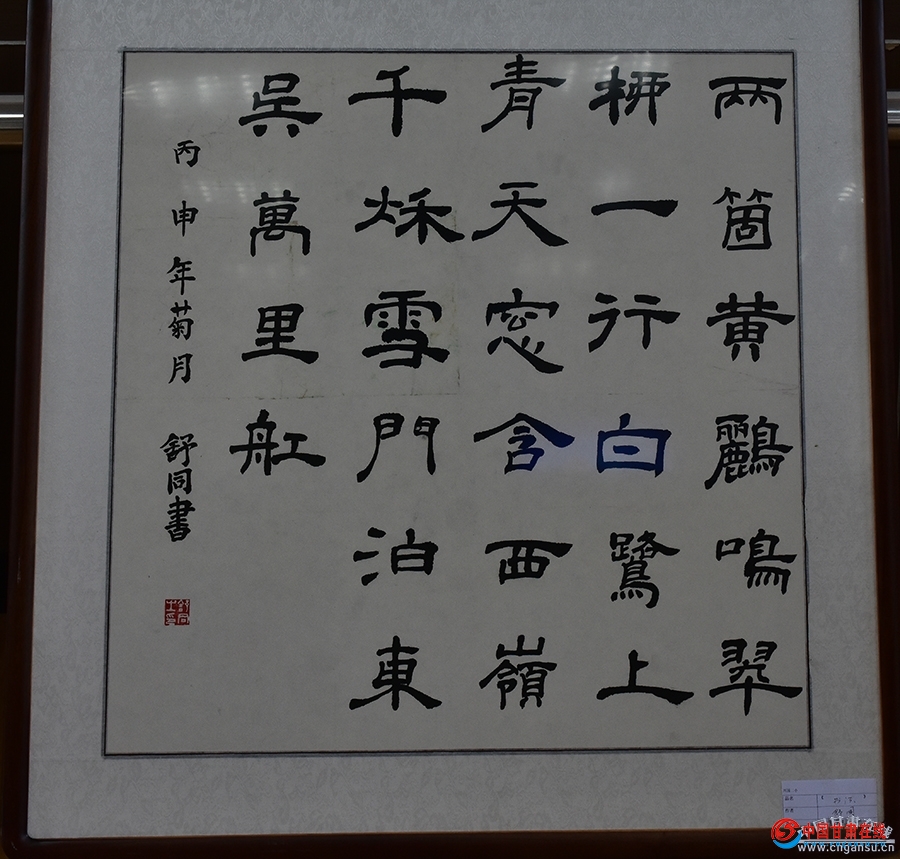 兩箇黄鸝鳴翠
栁一行白鷺上
青天窓含西嶺
千秌雪門泊東
吳萬里舡
丙申年菊月 舒同書
中国甘肃在线
www.cngansu.cn